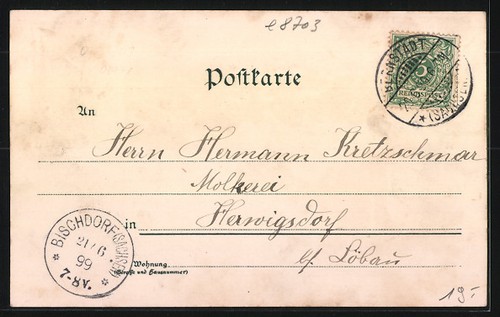 e8703
BERNSTADT
(SACHSEN)
REICHSPOST
Postkarte
An
Herrn Hermann Kretzschmar
Molkerei
in Herwigsdorf
b/ Löbau
Wohnung.
(Straße und Hausnummer)
BISCHDORF (SACHSEN)
21/6
99
7-8V.
19.-